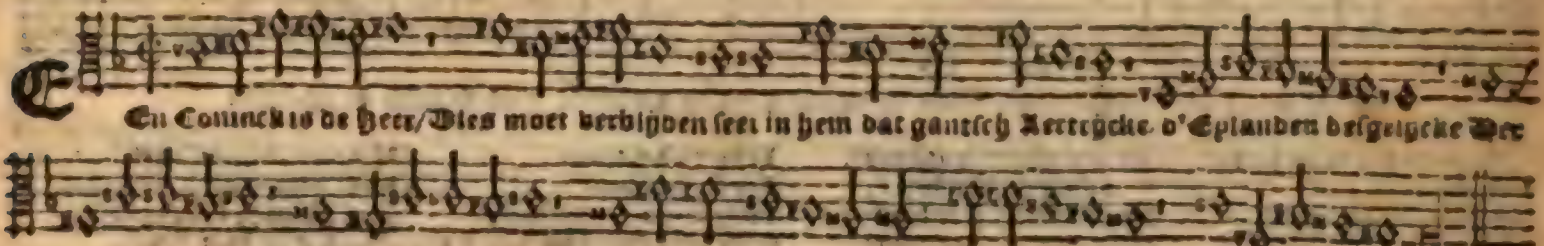 EEn Coninck is de Heer/Dies moet verblijden seer in hem dat gantsch Aertrijcke d'Eylanden desgelijcke Met